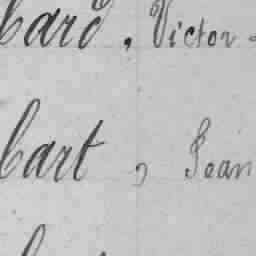 bard, Victor
bart, Jean